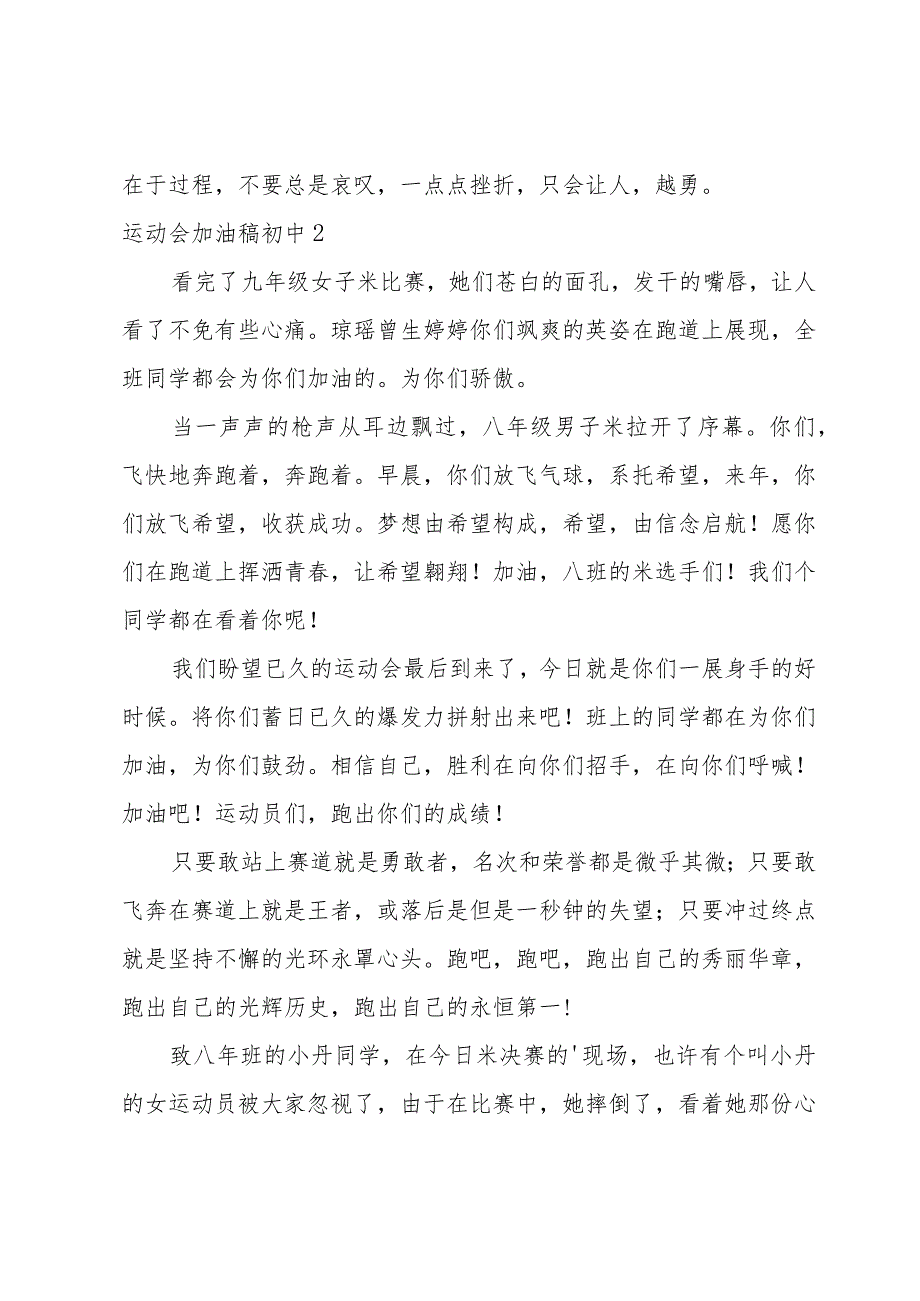 在于过程，不要总是哀叹，一点点挫折，只会让人，越勇。
运动会加油稿初中2
看完了九年级女子米比赛，她们苍白的面孔，发干的嘴唇，让人
看了不免有些心痛。琼瑶曾生婷婷你们飒爽的英姿在跑道上展现，全
班同学都会为你们加油的。为你们骄傲。
当一声声的枪声从耳边飘过，八年级男子米拉开了序幕。你们，
飞快地奔跑着，奔跑着。早晨，你们放飞气球，系托希望，来年，你
们放飞希望，收获成功。梦想由希望构成，希望，由信念启航！愿你
们在跑道上挥洒青春，让希望翱翔！加油，八班的米选手们！我们个
同学都在看着你呢！
我们盼望已久的运动会最后到来了，今日就是你们一展身手的好
时候。将你们蓄日已久的爆发力拼射出来吧！班上的同学都在为你们
加油，为你们鼓劲。相信自己，胜利在向你们招手，在向你们呼喊！
加油吧！运动员们，跑出你们的成绩！
只要敢站上赛道就是勇敢者，名次和荣誉都是微乎其微；只要敢
飞奔在赛道上就是王者，或落后是但是一秒钟的失望；只要冲过终点
就是坚持不懈的光环永罩心头。跑吧，跑吧，跑出自己的秀丽华章，
跑出自己的光辉历史，跑出自己的永恒第一！
致八年班的小丹同学，在今日米决赛的'现场，也许有个叫小丹
的女运动员被大家忽视了，由于在比赛中，她摔倒了，看着她那份心